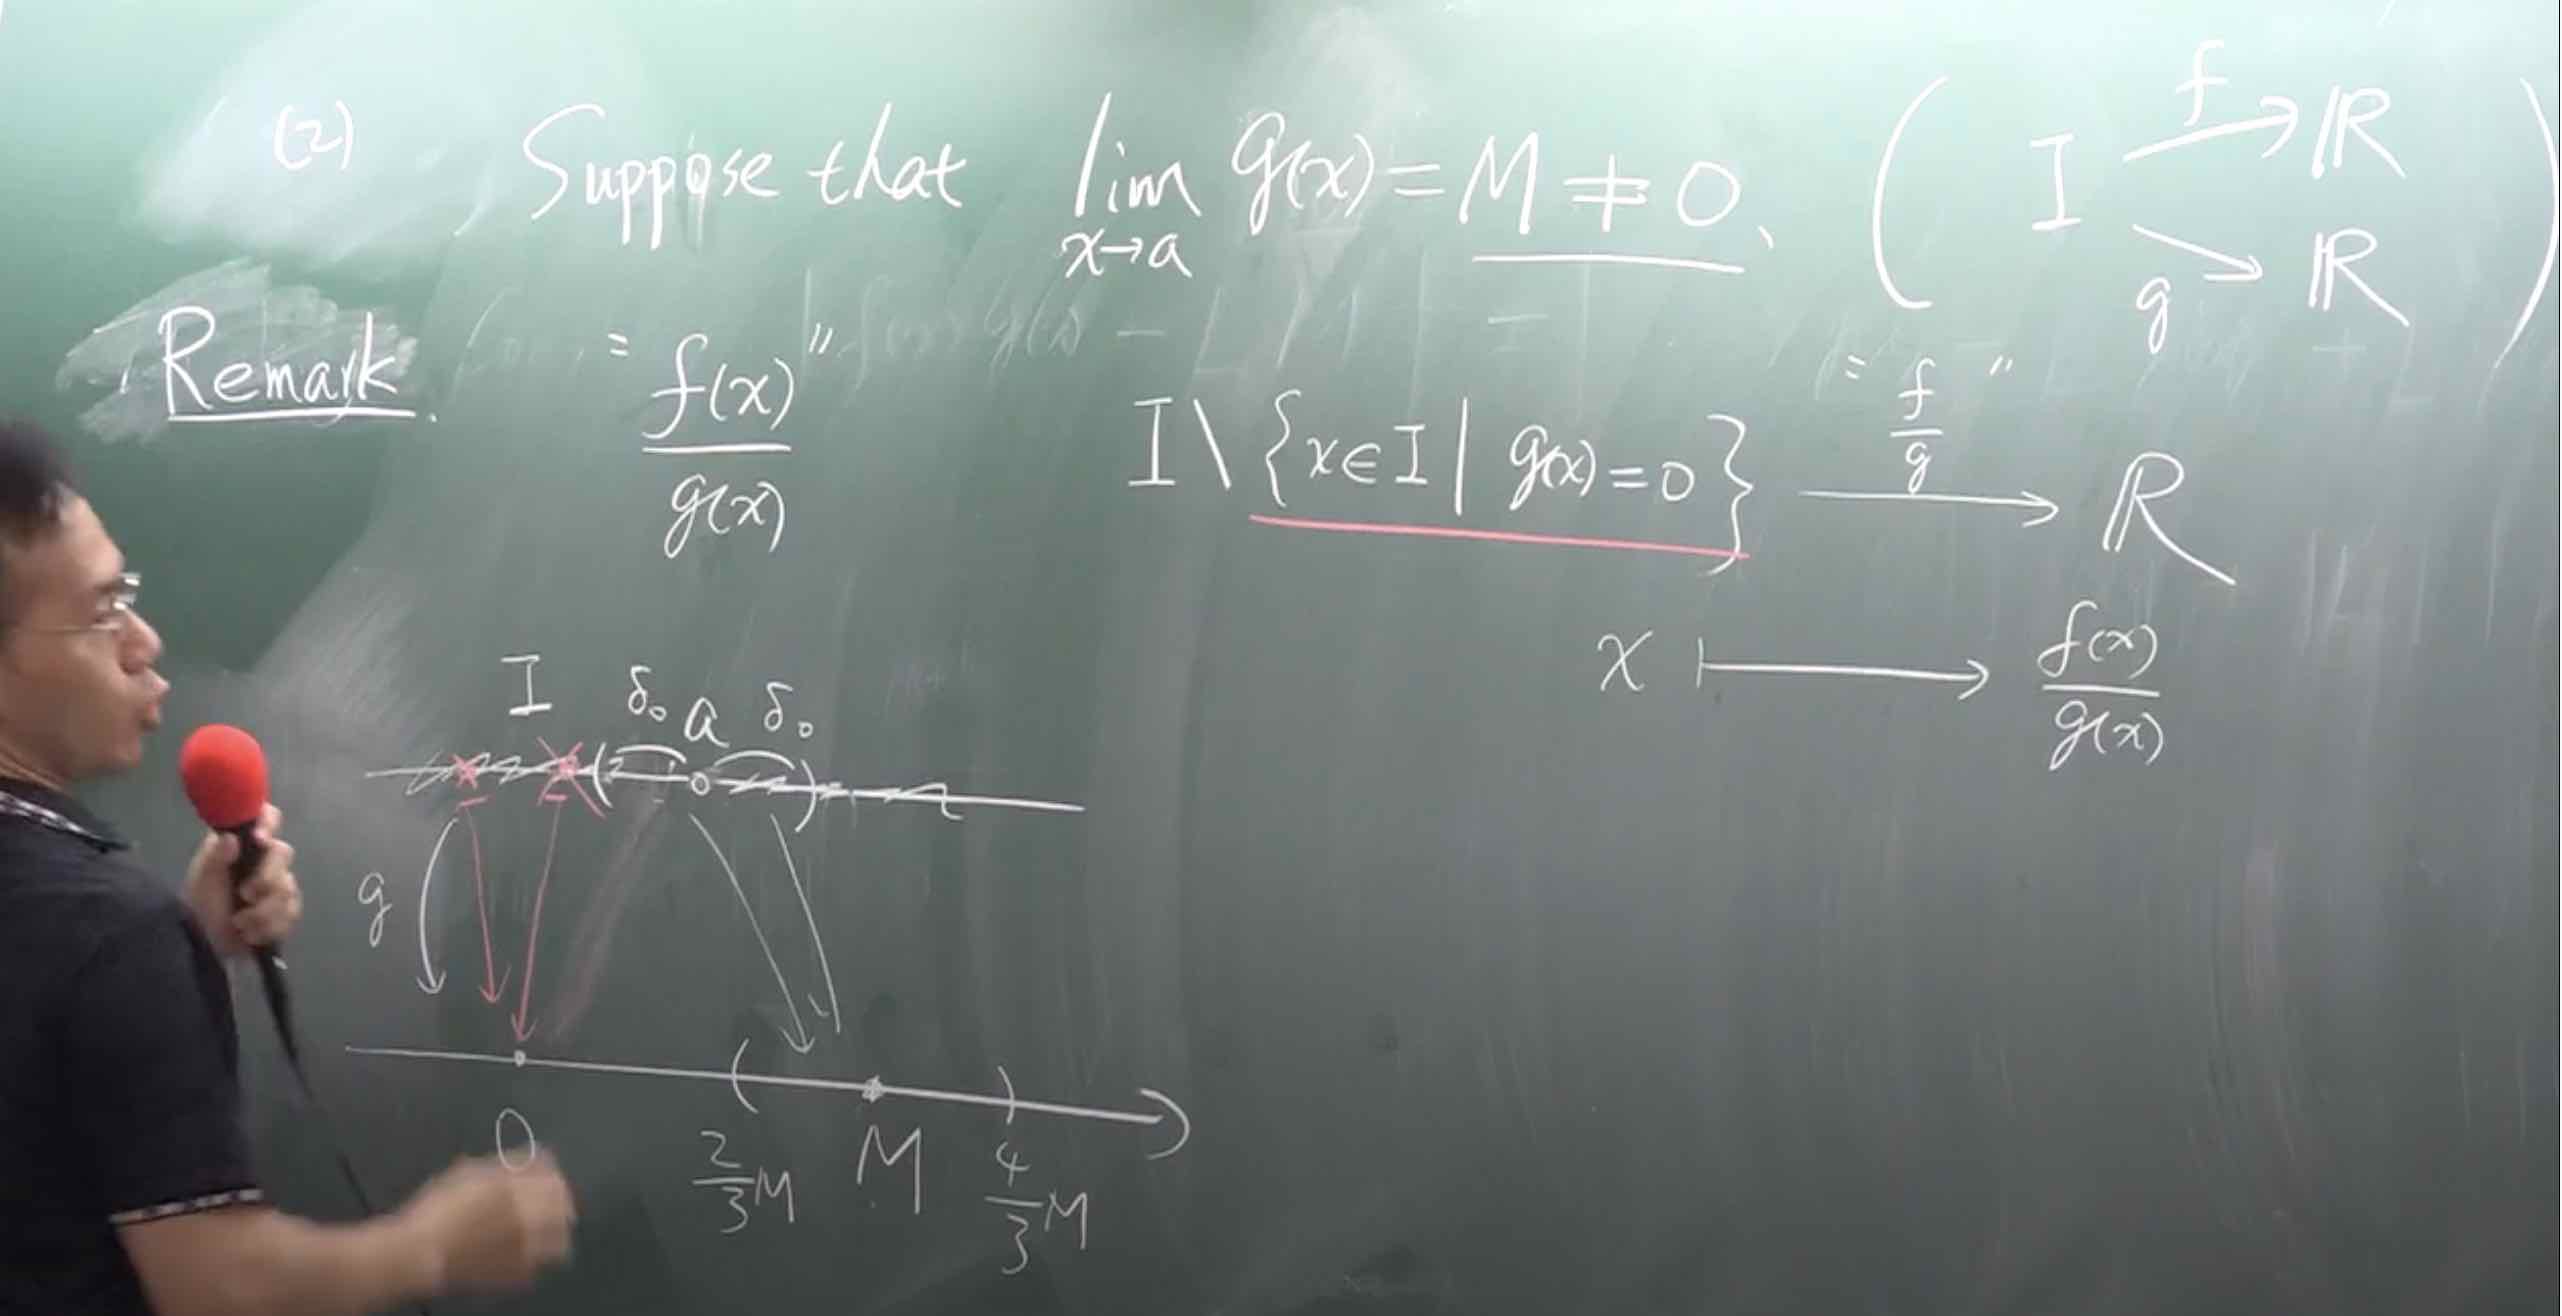 (2) Suppose that lim g(x) = M ≠ 0、 ( I f→ ℝ )
x→a g↘ ℝ
Remark. "f(x)/g(x)" I \ {x∈I | g(x)=0} "f/g" → ℝ
x ↦ f(x)/g(x)
I δ₀ a δ₀
g
0 2/3 M M 4/3 M